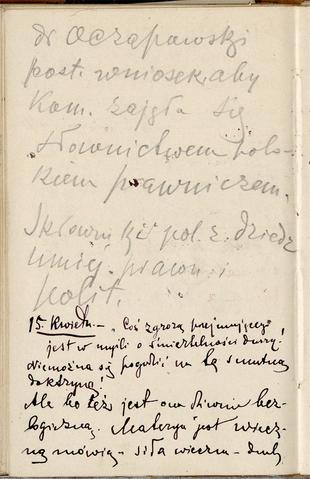 dr Oczapowski
post. wniosek, aby
Kom. zajęła się
słownictwem pols-
kiem prawniczem.
Skłown. pol. z dziedz
umiej. prawn. i
polit.
15. Kwietn. – „Coś zgrozą przejmującego
jest w myśli o śmiertelności duszy.
Niemożna się pogodzić na tą smutną
doktryną!
Ale bo też jest ona dziwnie bez-
logiczną. Materya jest wiecz-
ną mówią – siła wieczna – duch